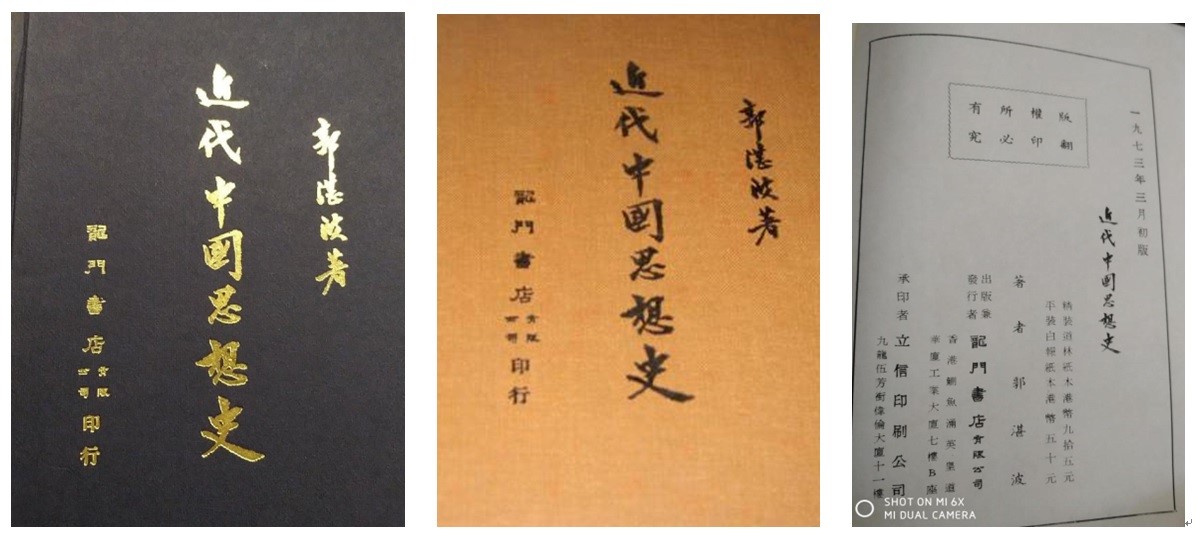 郭湛波著
近代中國思想史
龍門書店有限公司印行
郭湛波著
近代中國思想史
龍門書店有限公司印行
一九七三年三月初版
版權所有
翻印必究
近代中國思想史
精裝道林紙本港幣九拾五元
平裝白報紙本港幣五十元
著者 郭湛波
出版兼發行者 龍門書店有限公司
香港鰂魚涌英皇道
華廈工業大廈七樓B座
承印者 立信印刷公司
九龍伍芳偉倫大廈十一樓
SHOT ON MI 6X
MI DUAL CAMERA